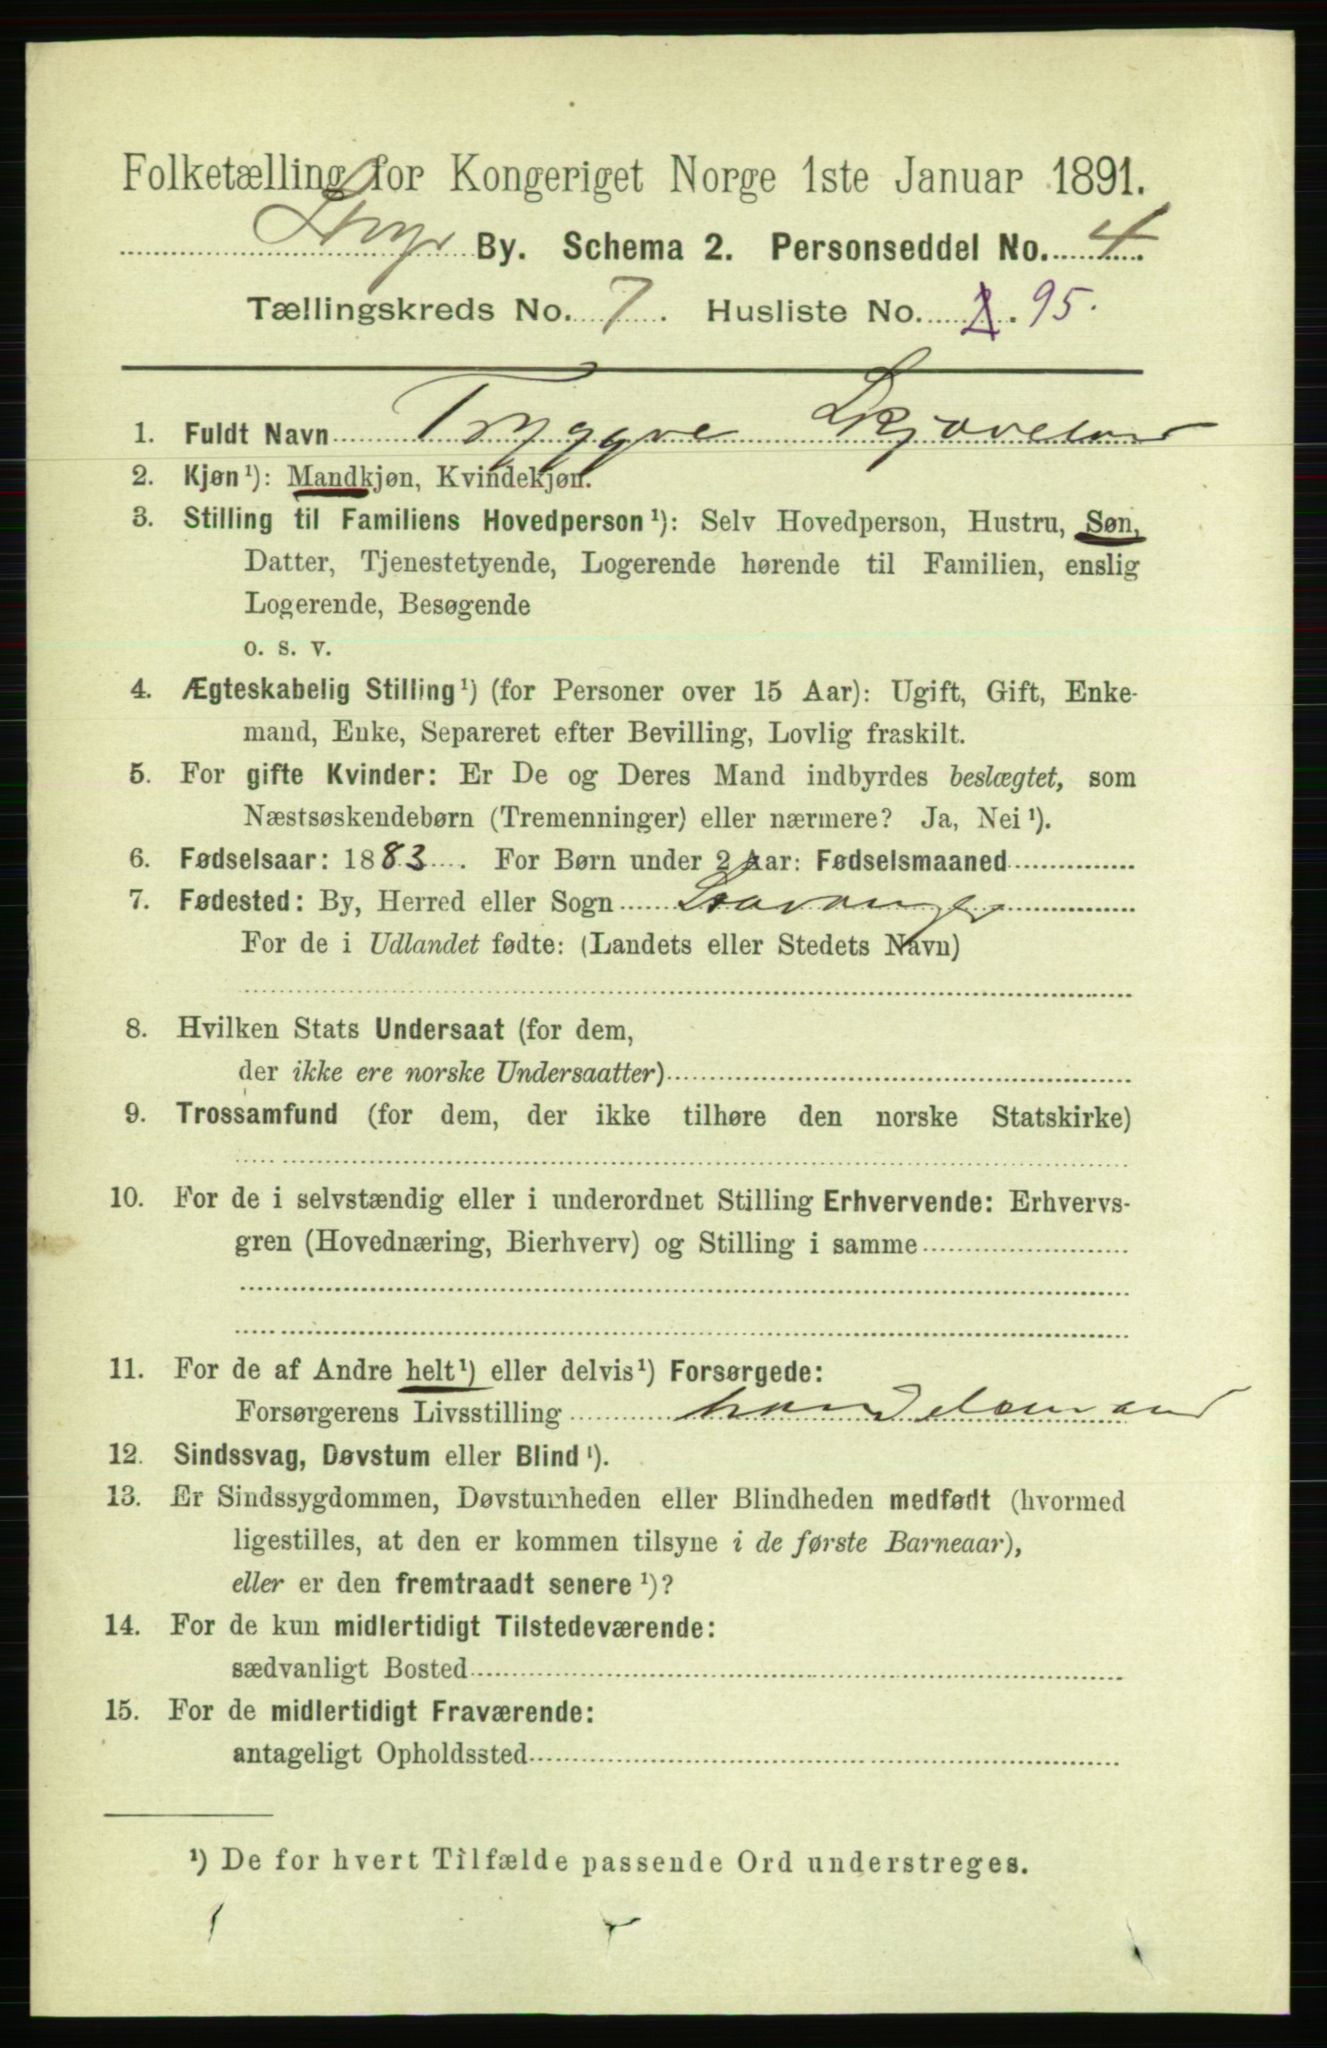 Folketælling for Kongeriget Norge 1ste Januar 1891.
Stvgr By. Schema 2. Personseddel No. 4.
Tællingskreds No. 7. Husliste No. 2. 95.
1. Fuldt Navn Tryggve
2. Kjøn¹): Mandkjøn, Kvindekjøn.
3. Stilling til Familiens Hovedperson¹): Selv Hovedperson, Hustru, Søn,
Datter, Tjenestetyende, Logerende hørende til Familien, enslig
Logerende, Besøgende
o. s. v.
4. Ægteskabelig Stilling¹) (for Personer over 15 Aar): Ugift, Gift, Enke-
mand, Enke, Separeret efter Bevilling, Lovlig fraskilt.
5. For gifte Kvinder: Er De og Deres Mand indbyrdes beslægtet, som
Næstsøskendebørn (Tremenninger) eller nærmere? Ja, Nei¹).
6. Fødselsaar: 1883. For Børn under 2 Aar: Fødselsmaaned
7. Fødested: By, Herred eller Sogn Stavanger
For de i Udlandet fødte: (Landets eller Stedets Navn)
8. Hvilken Stats Undersaat (for dem,
der ikke ere norske Undersaatter)
9. Trossamfund (for dem, der ikke tilhøre den norske Statskirke)
10. For de i selvstændig eller i underordnet Stilling Erhvervende: Erhvervs-
gren (Hovednæring, Bierhverv) og Stilling i samme
11. For de af Andre helt¹) eller delvis¹) Forsørgede:
Forsørgerens Livsstilling handelsmand
12. Sindssvag, Døvstum eller Blind¹).
13. Er Sindssygdommen, Døvstumheden eller Blindheden medfødt (hvormed
ligestilles, at den er kommen tilsyne i de første Barneaar),
eller er den fremtraadt senere¹)?
14. For de kun midlertidigt Tilstedeværende:
sædvanligt Bosted
15. For de midlertidigt Fraværende:
antageligt Opholdssted
¹) De for hvert Tilfælde passende Ord understreges.